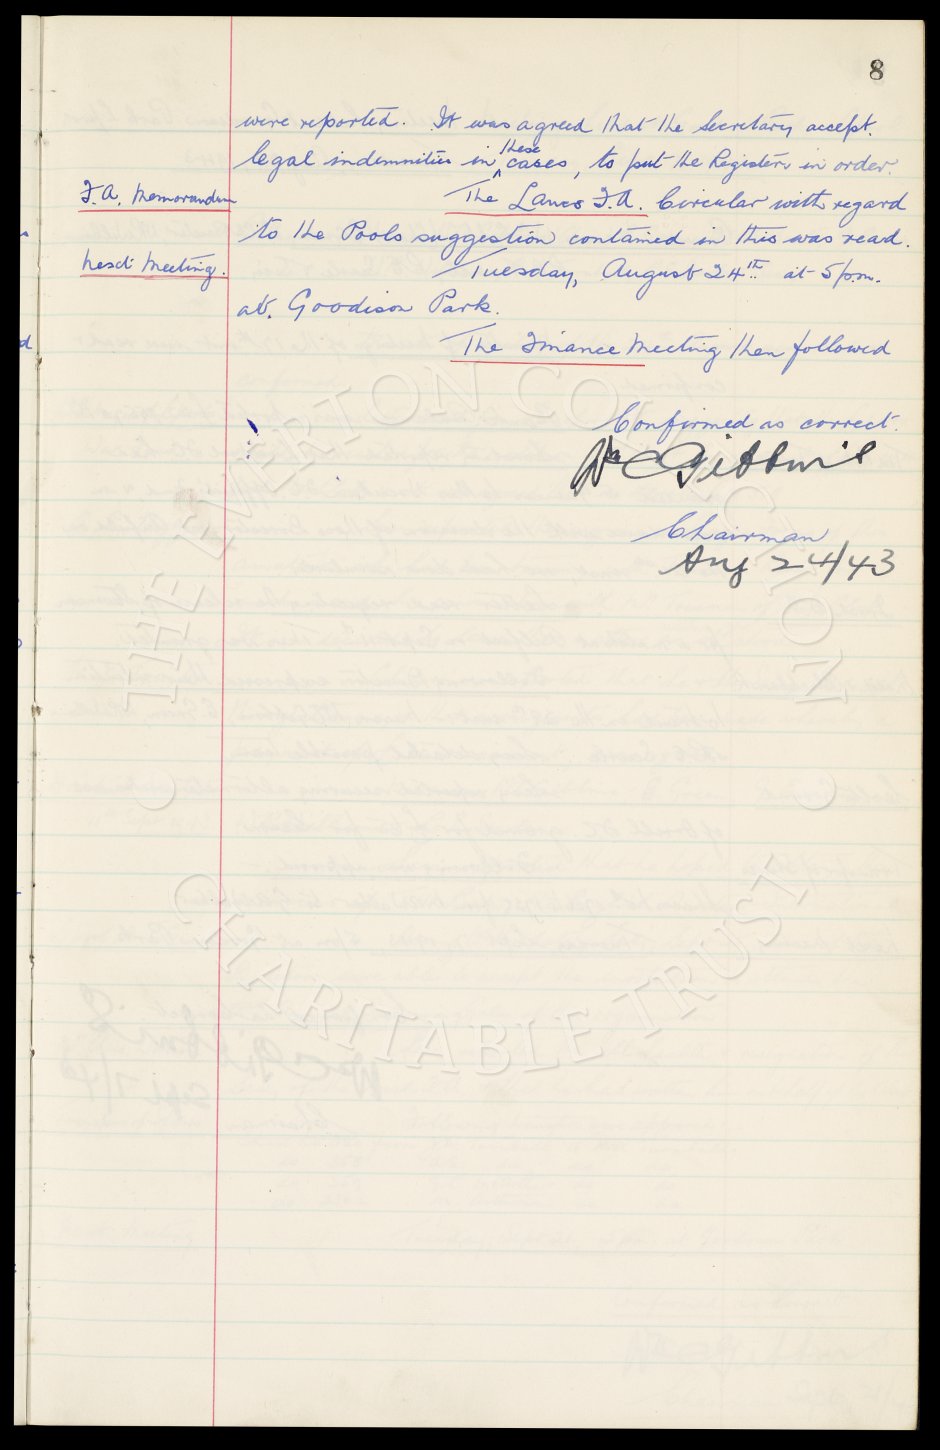 8
were reported. It was agreed that the Secretary accept.
legal indemnities in these cases, to put the Registers in order.
F.A. Memorandum
The Lancs F.A. Circular with regard
to the Pools suggestion contained in this was read.
Next Meeting.
Tuesday, August 24th at 5 p.m.
at. Goodison Park.
The Finance Meeting then followed
Confirmed as correct.
Wm C Gibbins
Chairman
Aug 24/43
THE EVERTON COLLECTION
CHARITABLE TRUST